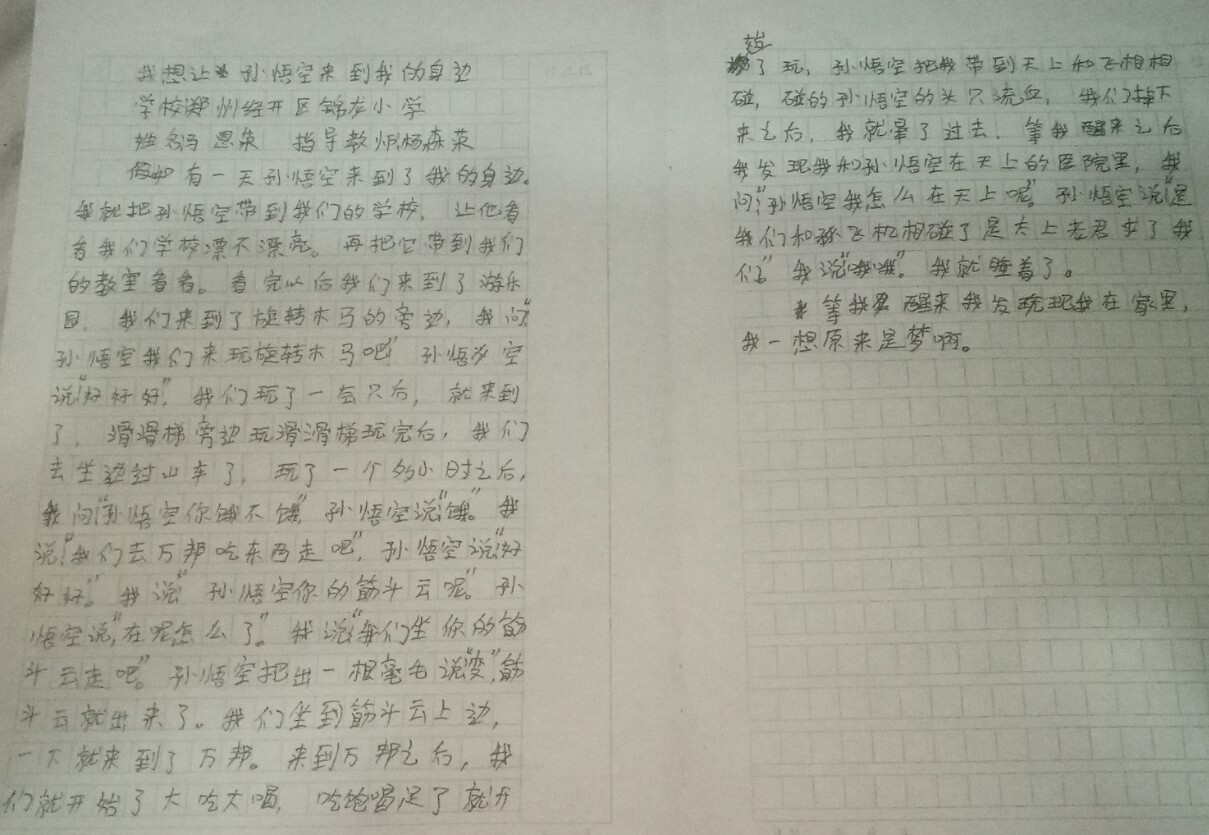 我想让孙悟空来到我的身边
学校郑州经开区锦龙小学
姓名冯恩荣 指导教师杨森荣
假如有一天孙悟空来到了我的身边。
我就把孙悟空带到我们的学校，让他看
看我们学校漂不漂亮。再把它带到我们
的教室看看。看完以后我们来到了游乐
园，我们来到了旋转木马的旁边，我问“
孙悟空我们来玩旋转木马吧”孙悟空
说“好好好”，我们玩了一会只后，就来到
了，滑滑梯旁边玩滑滑梯玩完后，我们
去坐过山车了，玩了一个多小时之后，
我问“孙悟空你饿不饿”孙悟空说“饿”。我
说“我们去万邦吃东西走吧”，孙悟空说“好
好好。”我说“孙悟空你的筋斗云呢”。孙
悟空说“在呢怎么了”。我说“我们坐你的筋
斗云走吧”。孙悟空把出一根毫毛说“变”，筋
斗云就出来了。我们坐到筋斗云上边，
一下就来到了万邦。来到万邦之后，我
们就开始了大吃大喝，吃饱喝足了就开
始了玩，孙悟空把我带到天上和飞相相
碰，碰的孙悟空的头只流血，我们掉下
来之后，我就晕了过去，等我醒来之后
我发现我和孙悟空在天上的医院里，我
问“孙悟空我怎么在天上呢”，孙悟空说“是
我们和飞机相碰了是太上老君求了我
们”我说“哦哦”。我就睡着了。
等我醒来我发现我在家里，
我一想原来是梦啊。